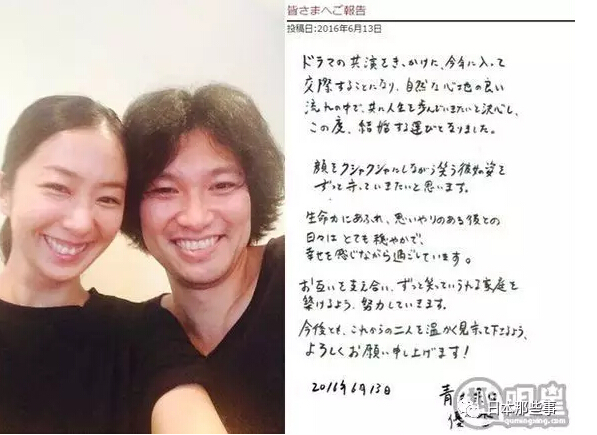 皆さまへご報告
投稿日:2016年6月13日
ドラマの共演をきっかけに、今年に入って
交際することになり、自然な心地の良い
流れの中で、共に人生を歩んでいきたいと決心し、
この度、結婚する運びとなりました。
顔をクシャクシャにしながら笑う彼女の姿を
ずっと守っていきたいと思います。
生命力にあふれ、思いやりのある彼との
日々はとても穏やかで、
幸せを感じながら過ごしています。
お互いを支え合い、ずっと笑っていられる家庭を
築けるよう、努力していきます。
今後とも、これからの二人を温かく見守って下さるよう、
よろしくお願い申し上げます!
2016年6月13日
青
優
明星
日本那些事